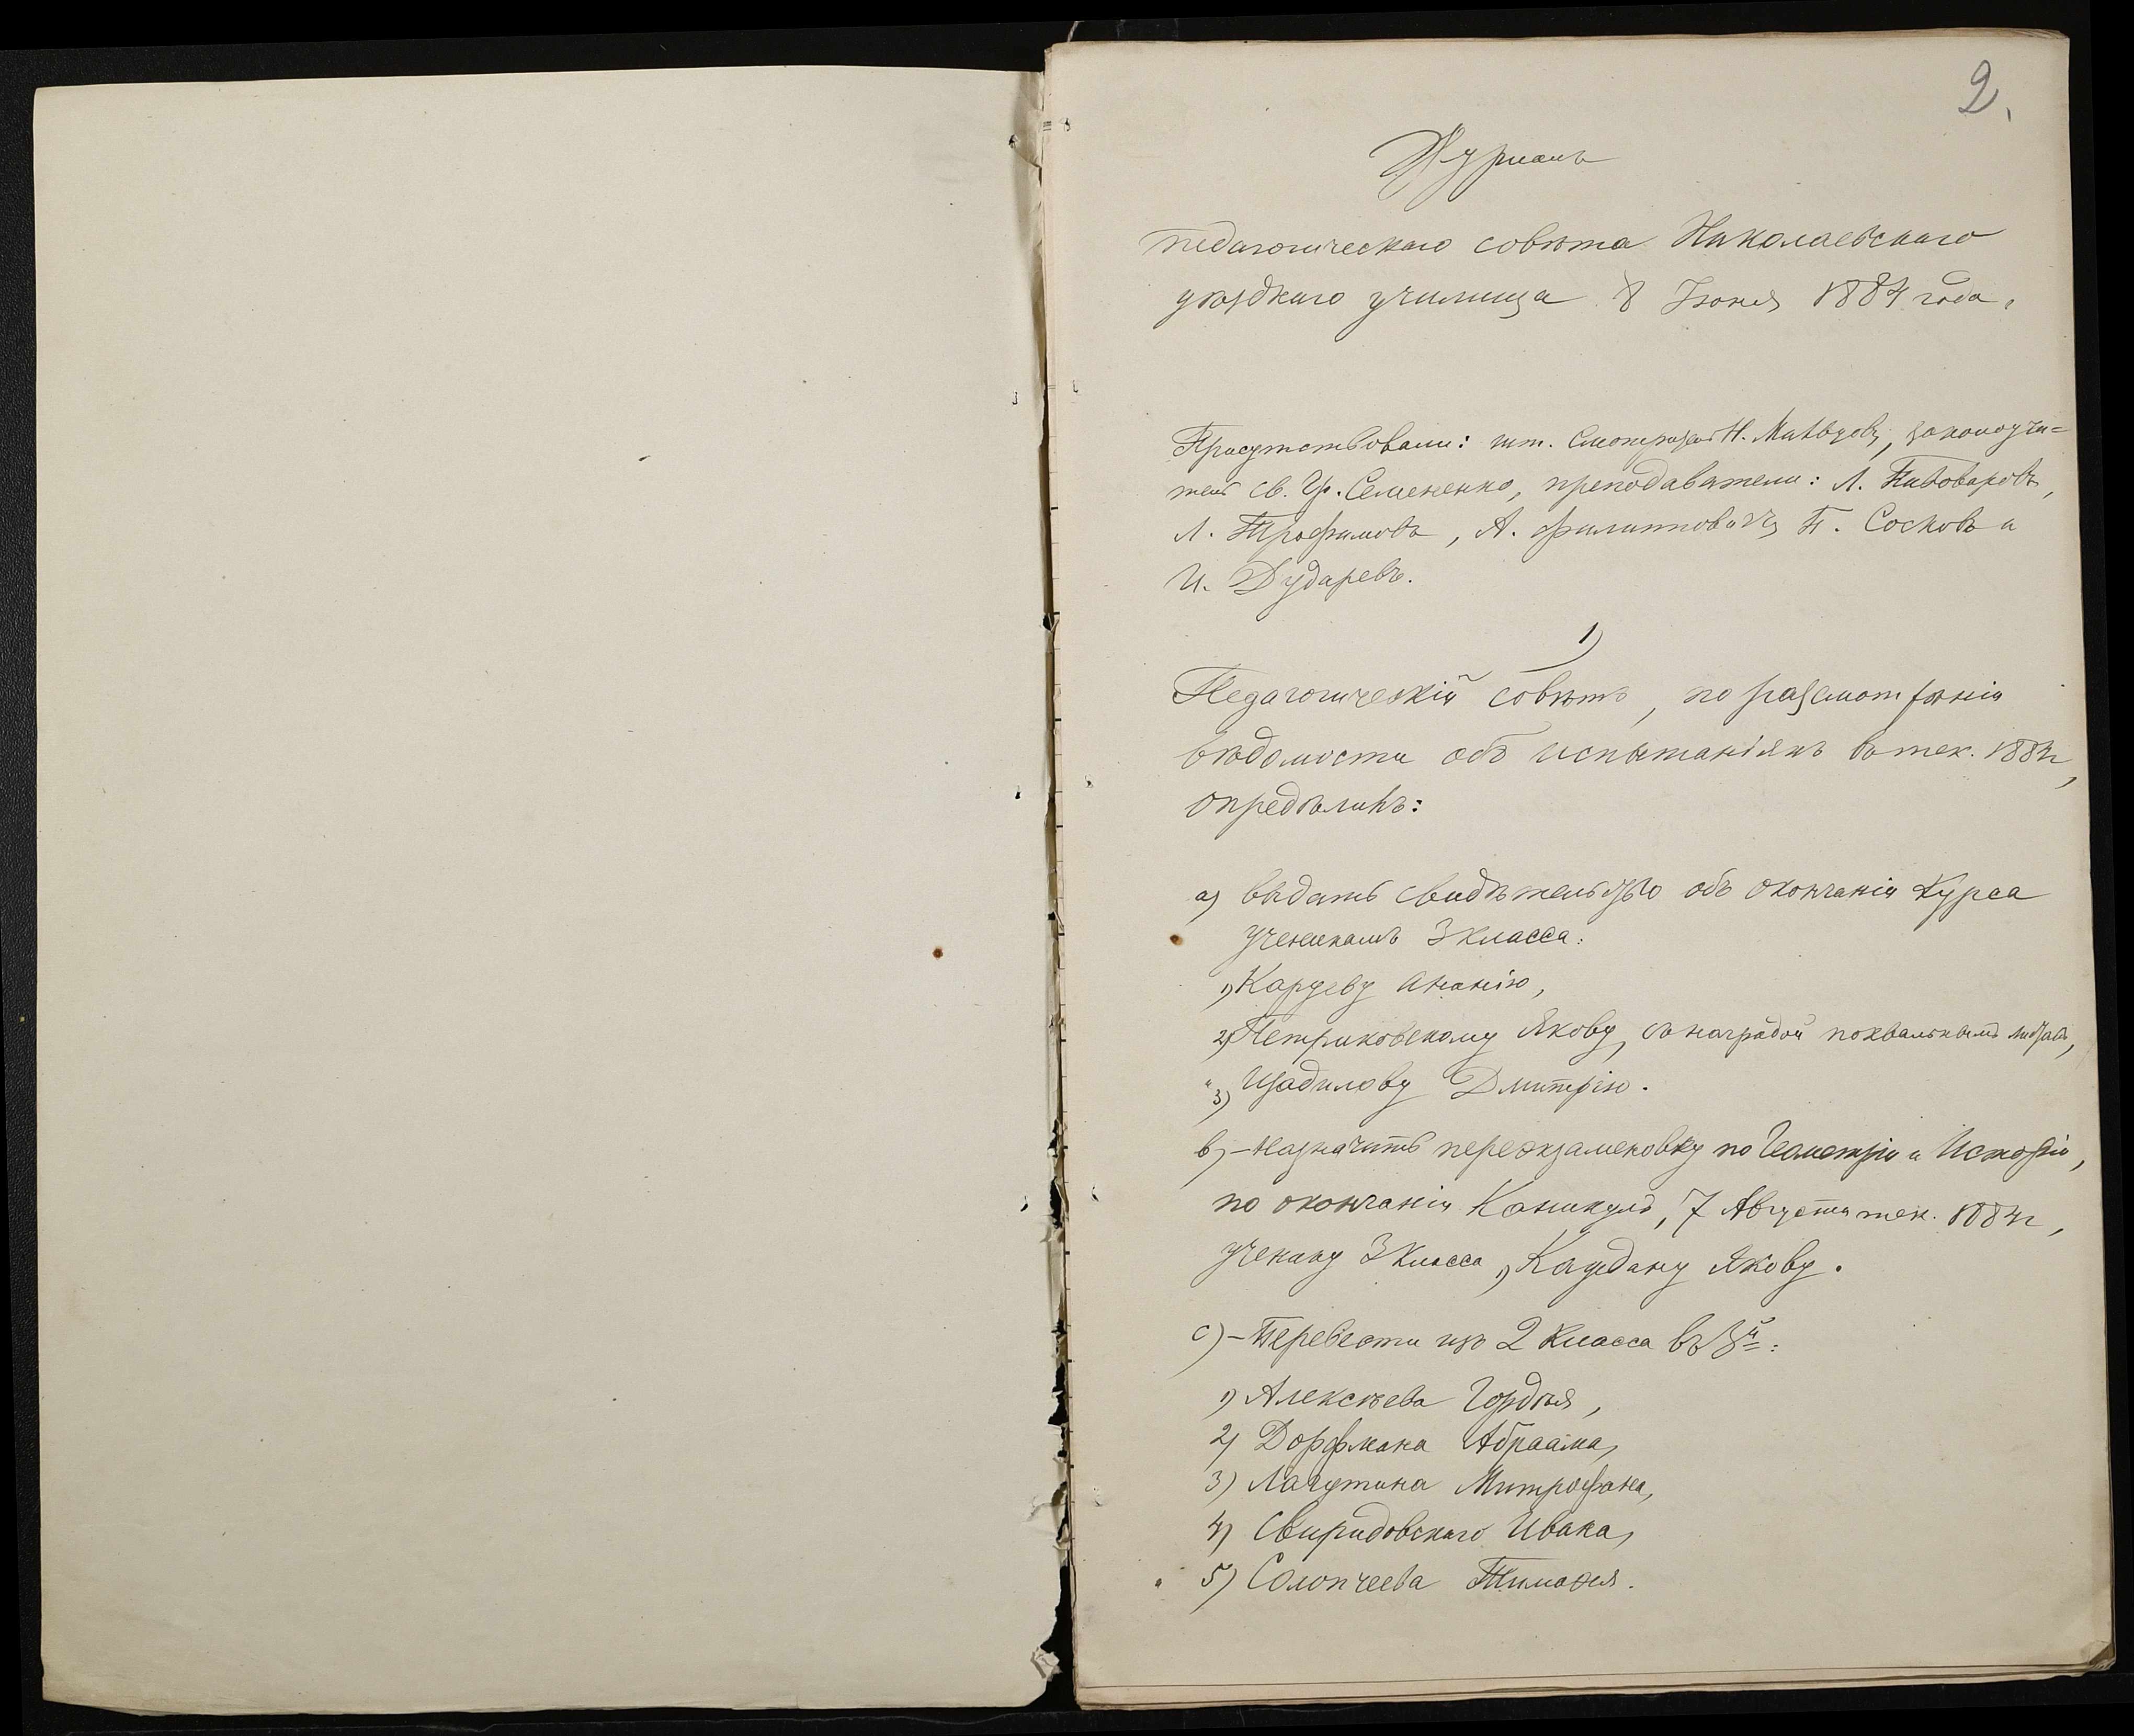 2.
Журналъ
педагогическаго совѣта Николаевскаго
уѣзднаго училища 8 Іюня 1884 года.
Присутствовали: шт. смотритель Н. законоучи=
тель св. Гр. Семененко, преподаватели: Л. Пивоваровъ,
Л. Трофимовъ, А. Филипповичъ, П. Сосновъ и
И. Дударевъ.
1)
Педагогическій совѣтъ, по разсмотрѣніи
вѣдомости объ испытаніяхъ въ тек. 1884 г,
опредѣлилъ:
а) выдать свидѣтельство объ окончаніи курса
ученикамъ 3 класса:
1) Карцеву Ананію,
2) Петриковскому Якову, съ наградой похвальнымъ листомъ,
3) Щадилову Дмитрію.
b) - Назначить переэкзаменовку по Геометріи и Исторіи,
по окончаніи Каникулъ, 7 Августа тек. 1884 г,
ученику 3 класса, 1) Каждану Якову.
c) - Перевести изъ 2 класса въ 3й:
1) Алексѣева Гордѣя,
2) Дорфмана Абраама,
3) Лагутина Митрофана,
4) Свиридовскаго Ивана,
5) Солопчеева Тимоѳея.